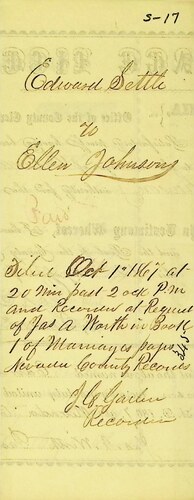 S-17
Edward Settle
to
Ellen Johnson
Filed Oct 1st 1867 at
20 Min past 2 ock P.M
and Recorded at Request
of Jas A Worth in Book
1 of Marriages Page 345
Nevada County Records
Recorder